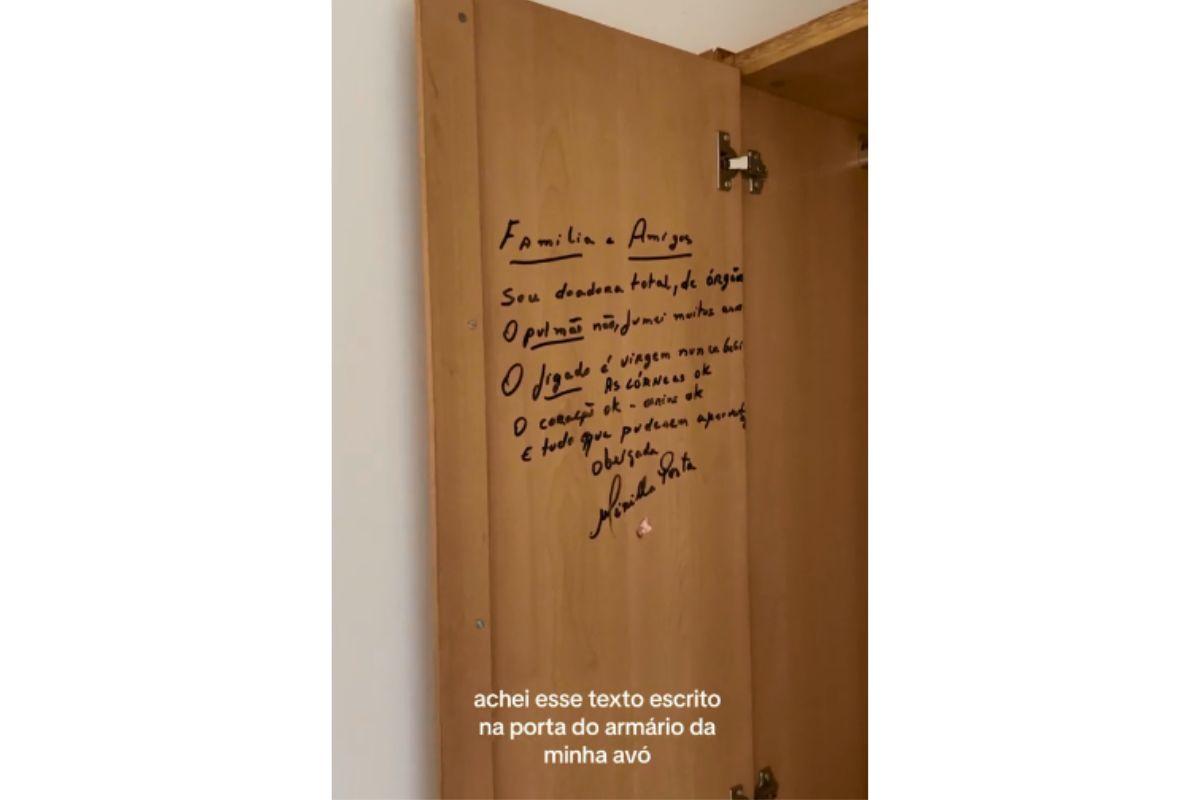 Familia e Amigos
Sou doadora total, de órgão
O pulmão não, fumei muitos anos
O figado é virgem nunca bebi
As córneas ok
O coração ok - ok
E tudo que puderem
Obrigada
Porta
achei esse texto escrito
na porta do armário da
minha avó